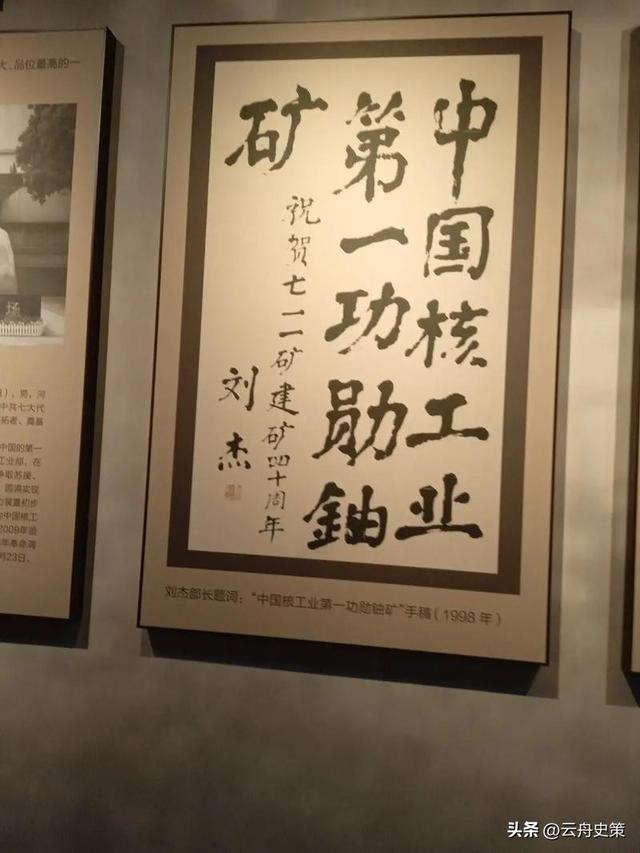 大、品位最高的一
场
），男，河
中共七大代
拓者、奠基
中国的第一
工业部，在
争取苏援、
圆满实现
装置初步
中国核工
2009年
年奉命调
月23日。
中国核工业
第一功勋铀
矿
祝贺七一一矿建矿四十周年
刘杰
刘杰部长题词：“中国核工业第一功勋铀矿”手稿（1998 年）
头条 @云舟史策